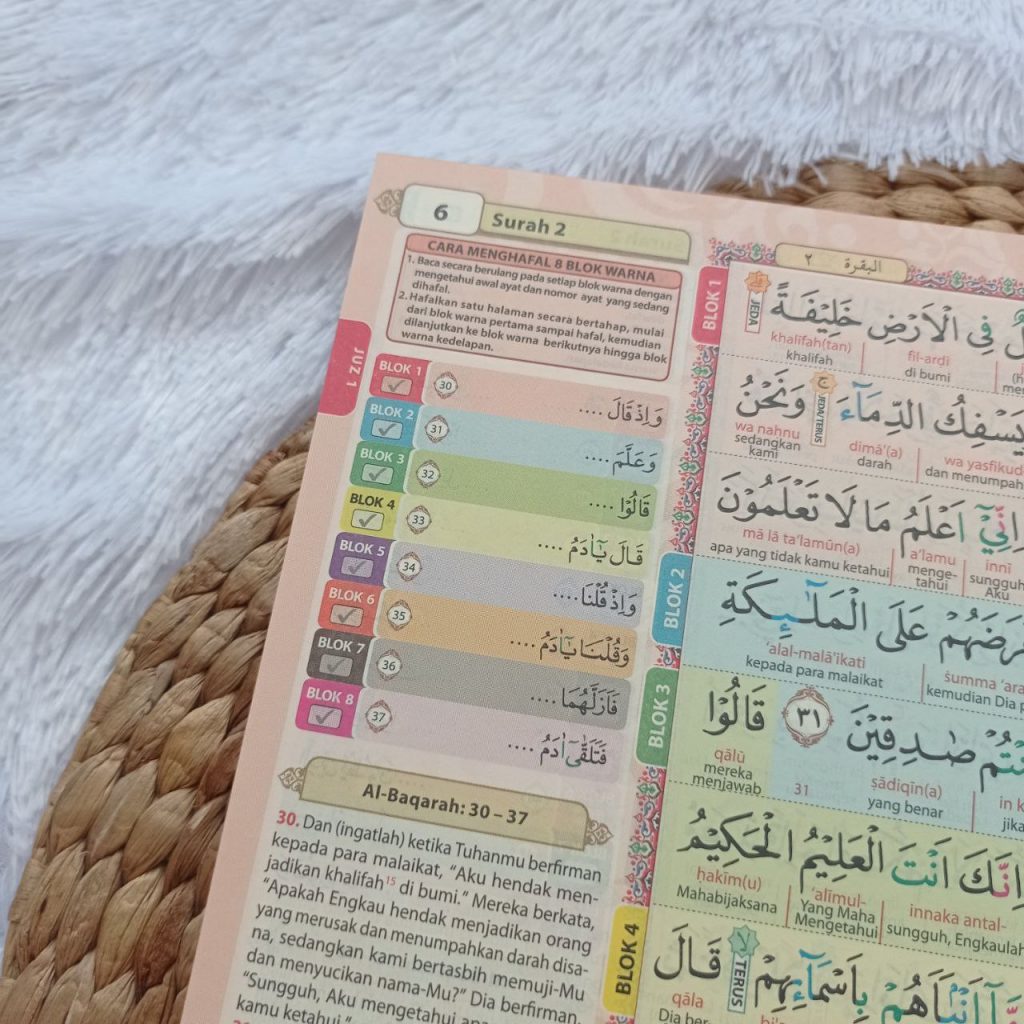 6
Surah 2
CARA MENGHAFAL 8 BLOK WARNA
1. Baca secara berulang pada setiap blok warna dengan
mengetahui awal ayat dan nomor ayat yang sedang
dihafal.
2. Hafalkan satu halaman secara bertahap, mulai
dari blok warna pertama sampai hafal, kemudian
dilanjutkan ke blok warna berikutnya hingga blok
warna kedelapan.
JUZ 1
BLOK 1 30 وَاِذْ قَالَ ....
BLOK 2 31 وَعَلَّمَ ....
BLOK 3 32 قَالُوْا ....
BLOK 4 33 قَالَ يٰٓاٰدَمُ ....
BLOK 5 34 وَاِذْ قُلْنَا....
BLOK 6 35 وَقُلْنَا يٰٓاٰدَمُ ....
BLOK 7 36 فَاَزَلَّهُمَا ....
BLOK 8 37 فَتَلَقّٰٓى اٰدَمُ ....
Al-Baqarah: 30 – 37
30. Dan (ingatlah) ketika Tuhanmu berfirman
kepada para malaikat, “Aku hendak men-
jadikan khalifah15 di bumi.” Mereka berkata,
“Apakah Engkau hendak menjadikan orang
yang merusak dan menumpahkan darah disa-
na, sedangkan kami bertasbih memuji-Mu
dan menyucikan nama-Mu?” Dia berfirman,
“Sungguh, Aku mengetahui apa
kamu ketahui.”
البقرة ٢
BLOK 1
JEDA
فِى الْاَرْضِ خَلِيْفَةً
khalīfah(tan) fil-arḍi
khalifah di bumi
يَسْفِكُ الدِّمَاۤءَ ج وَنَحْنُ
JEDA/TERUS
wa naḥnu dimā'(a) wa yasfikud
sedangkan darah dan menumpah
kami
اِنِّيْٓ اَعْلَمُ مَا لَا تَعْلَمُوْنَ
mā lā ta‘lamūn(a) a‘lamu innī
apa yang tidak kamu ketahui menge- sungguh
tahui Aku
BLOK 2
عَلَى الْمَلٰۤىِٕكَةِ
‘alal-malā'ikati ṡumma ‘ara
kepada para malaikat kemudian Dia
BLOK 3
صٰدِقِيْنَ ٣١ قَالُوْا
qālū 31 ṣādiqīn(a) in k
mereka yang benar jika
menjawab
اِنَّكَ اَنْتَ الْعَلِيْمُ الْحَكِيْمُ
ḥakīm(u) ‘alīmul- innaka antal-
Mahabijaksana Yang Maha sungguh, Engkaulah
Mengetahui
BLOK 4
بِاَسْمَاۤىِٕهِمْ لا قَالَ
TERUS
qāla
Dia ber